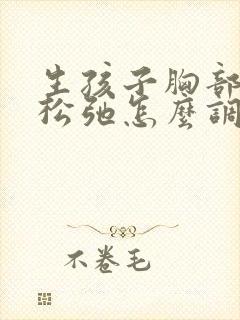 生孩子胸部
松弛怎麼調
不卷毛